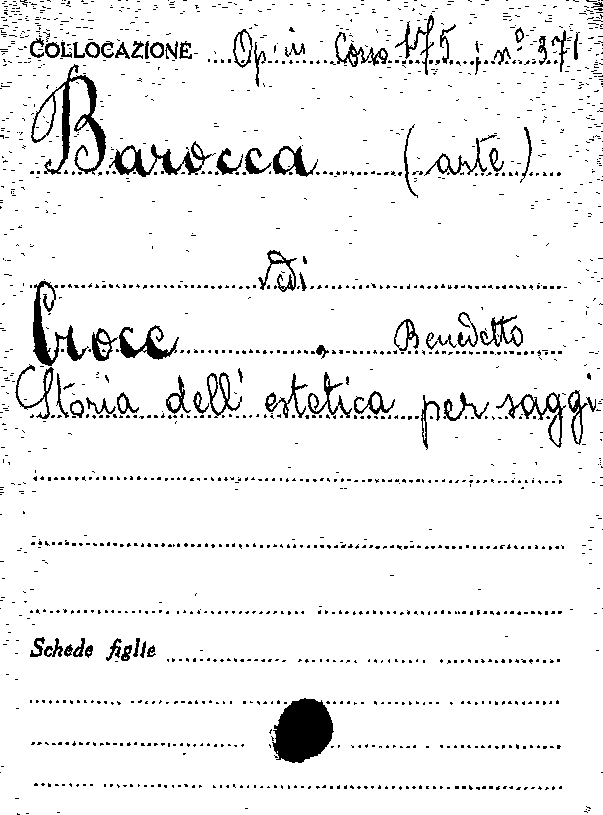 COLLOCAZIONE Op. in Corso 175 ; nº 371
Barocca (arte)
Vedi
Croce , Benedetto
Storia dell' estetica per saggi
Schede figlie